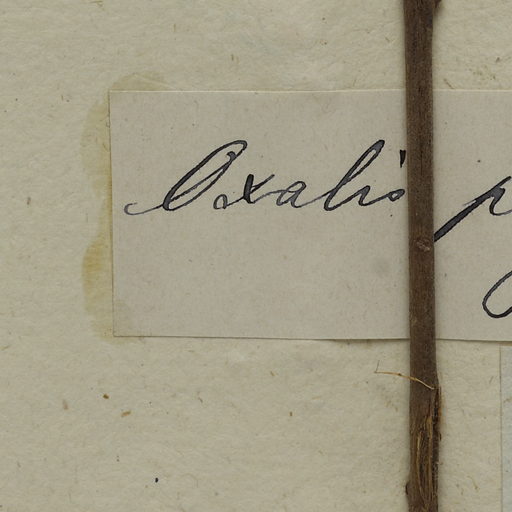 Oxalis p